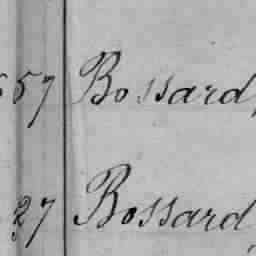 57 Bossard,
27 Bossard,